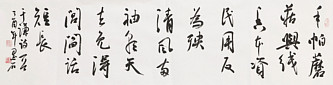 手帕蘑
菇與线
香本资
民用反
為殃
清風两
袖朝天
去免得
閭閻話
短長
于谦詩一首